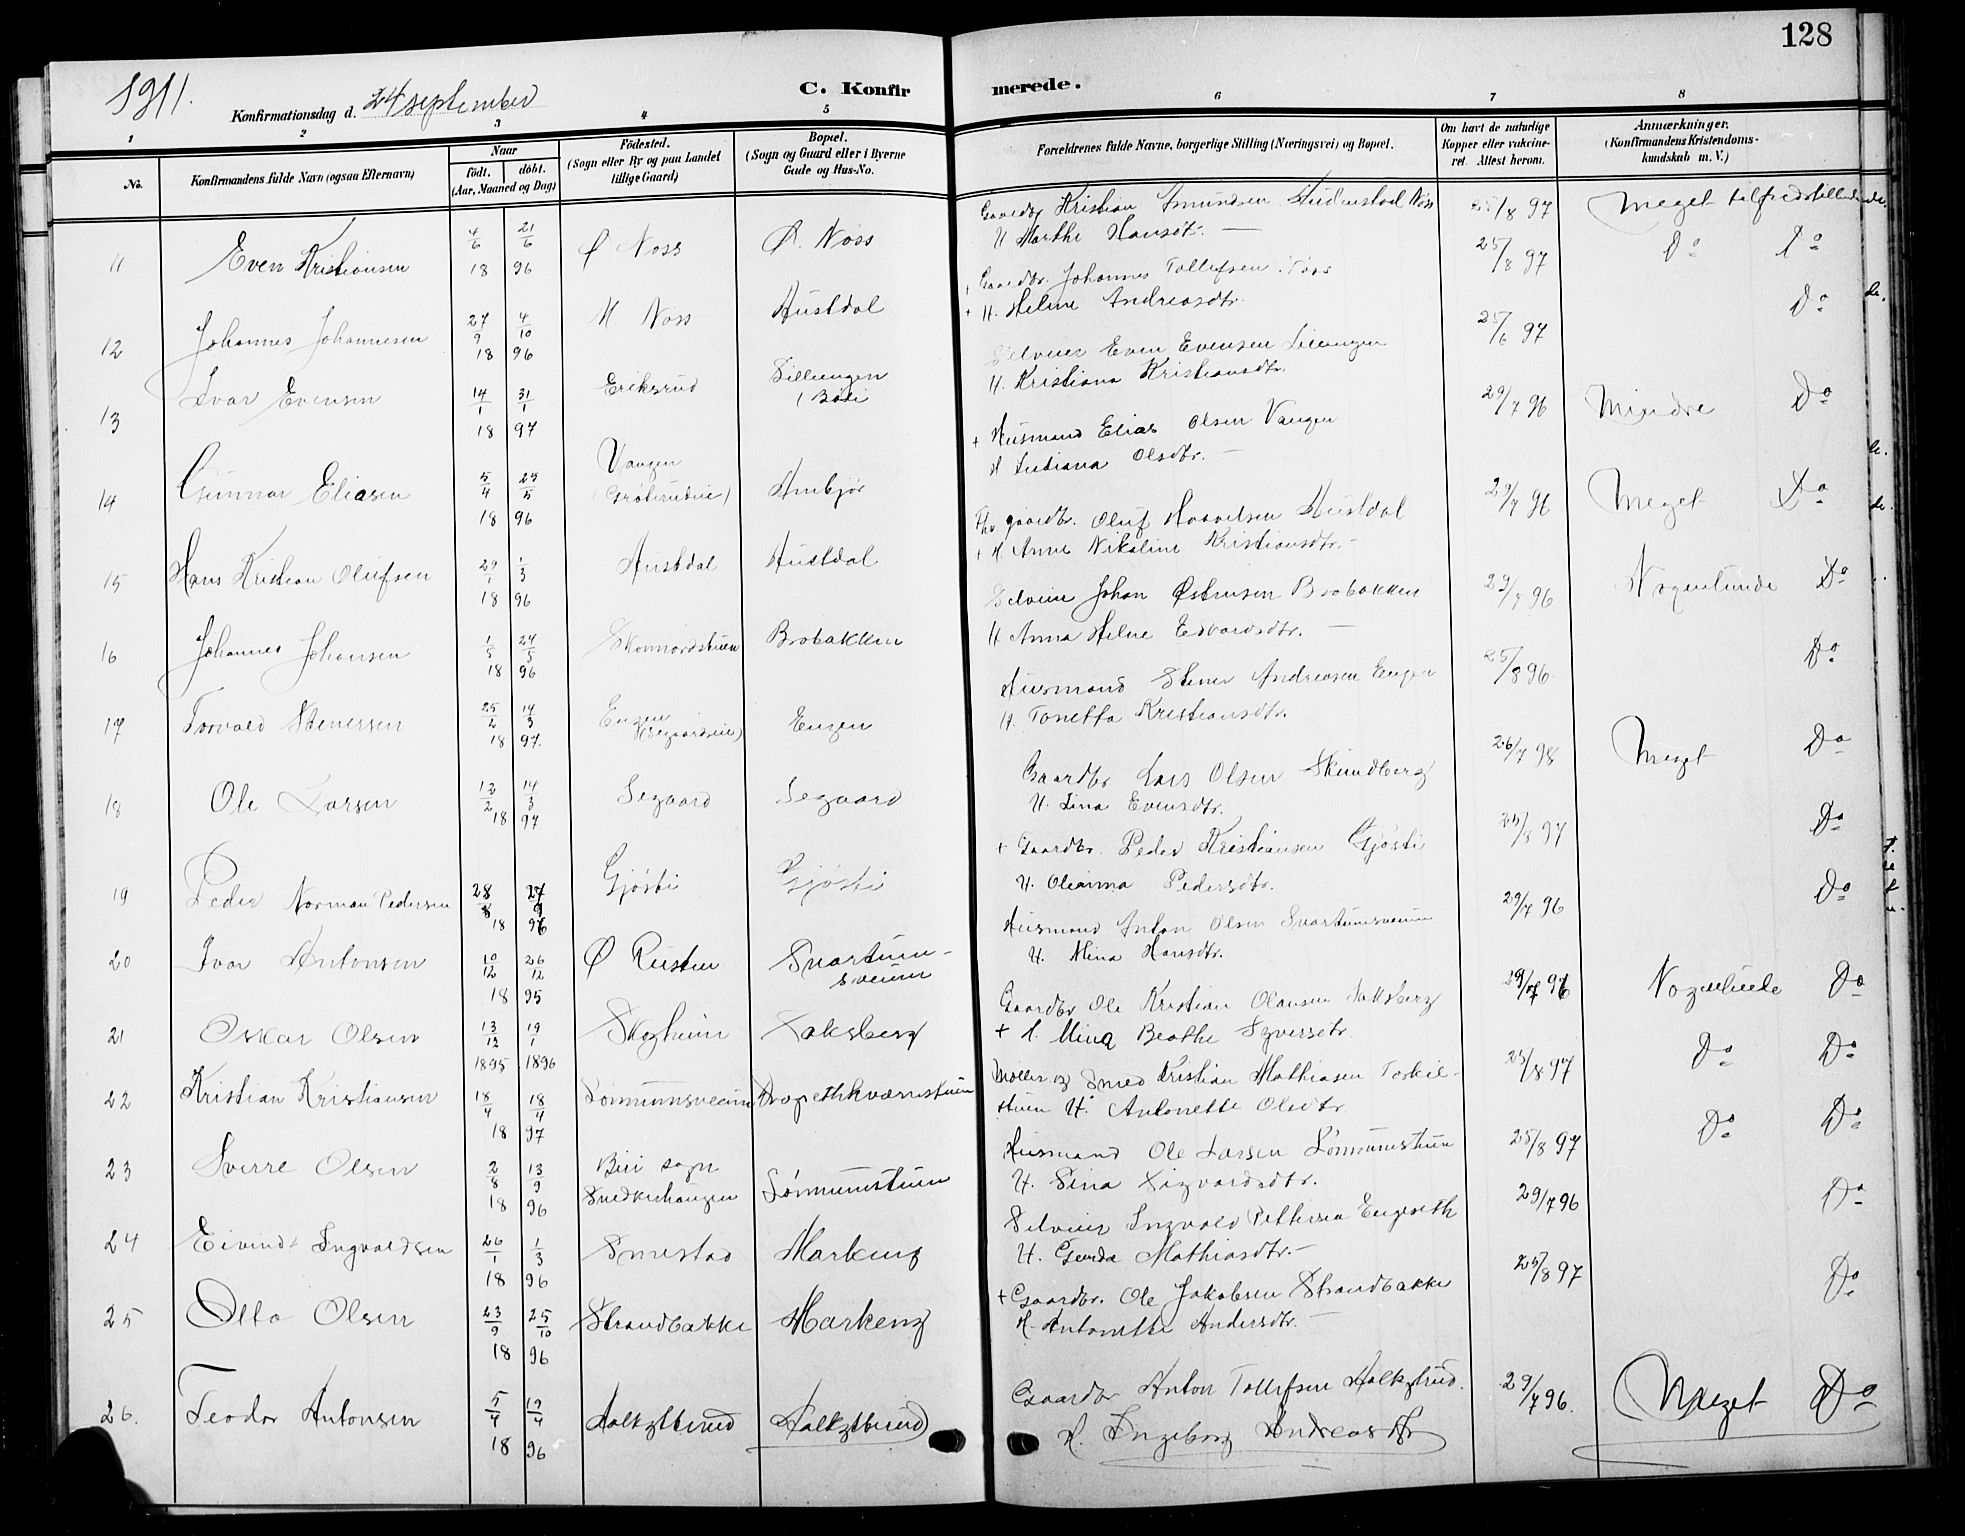 128
1911.
Konfirmationsdag d. 24 september
C. Konfirmerede.
1 2 3 4 5 6 7 8
No.
Konfirmandens fulde Navn (ogsaa Efternavn)
Naar
födt. döbt.
(Aar, Maaned og Dag)
Födested.
(Sogn eller By og paa Landet
tillige Gaard)
Bopæl.
(Sogn og Gaard eller i Byerne
Gade og Hus-No.
Forældrenes fulde Navne, borgerlige Stilling (Næringsvei) og Bopæl.
Om havt de naturlige
Kopper eller vakcine-
ret. Attest herom.
Anmærkninger.
(Konfirmandens Kristendoms-
kundskab m. V.)
11 Even Kristiansen 4/6 21/6 18 96 Ø Noss Ø. Noss
Gaardbr Kristian Amundsen Noss
H Marthe Hansdt. —
25/8 97 Meget tilfredstillende.
12 Johannes Johannesen 27/9 4/10 18 96 N. Noss Austdal
Gaardbr. Johannes Tollefsen Noss
+ H. Helene Andreasdtr.
25/8 97 Do Do
13 Ivar Evensen 14/1 31/1 18 97 Eriksrud
Even Evensen
H. Kristiana Kristiansdtr.
25/6 97 Do
14 Gunnar Eliasen 5/4 25/5 18 96 Vangen Ambjør
+ Husmand Elias Olsen Vangen
H Olsdtr. —
29/7 96 Mindre Do
15 Hans Kristian Olufsen 29/1 1/3 18 96 Austdal Austdal
gaardbr. Oluf Austdal
+ H. Anne Nikoline Kristiansdtr. —
29/7 96 Meget Do
16 Johannes Johansen 1/5 24/5 18 96 Brobakken
Johan Østensen Brobakken
H Anna Helene Edvardsdtr. —
29/7 96 Nogenlunde Do
17 Torvald Stenersen 25/2 14/3 18 97. Engen Engen
Husmand Stener Andreasen Engen
H. Tonetta Kristiansdtr.
25/8 96 Do
18 Ole Larsen 13/2 14/3 18 97 Segaard Segaard
Gaardbr Lars Olsen Skundberg
H. Lina Evensdtr.
26/7 98 Meget Do
19 Peder Norman Pedersen 28/8 27/9 18 96 Gjøsti Gjøsti
+ Gaardbr. Peder Kristiansen Gjøsti
H. Oleanna Pedersdtr.
25/8 97 Do
20 Ivar Antonsen 10/12 26/12 18 95 Ø Rusten Svartum-
sveum
Husmand Anton Olsen Svartumsveum
H. Mina Hansdtr.
29/7 96 Do
21 Oskar Olsen 13/12 19/1 1895 1896 Skogheim Laksberg
Gaardbr Ole Kristian Olausen Laksberg
+ H. Mina Beathe
29/7 96 Nogenlunde Do
22 Kristian Kristiansen 18/4 18/4 18 97
Møller og Smed Kristian Mathiasen Torkil-
stuen H. Antonette Olsdtr.
25/8 97 Do Do
23 Sverre Olsen 2/8 13/9 18 96 Biri sogn
Snedkerhaugen Lønnumstuen
Husmand Ole Larsen Lønnumstuen
H. Sina Sigvardsdtr.
25/8 97 Do Do
24 Eivind Ingvaldsen 26/1 1/3 18 96 Smestad Markeng
Ingvald Pettersen Engeseth
H. Gerda Mathiasdtr. —
29/7 96 Do
25 Otto Olsen 23/9 25/10 18 96 Strandbakke Markeng
+ Gaardbr. Ole Jakobsen Strandbakke
H. Antonette Andersdtr. —
25/8 97 Do
26. Teodor Antonsen 5/4 19/4 18 96
Gaardbr Anton Tollefsen
H. Ingeborg Andreasdtr
29/7 96. Meget Do